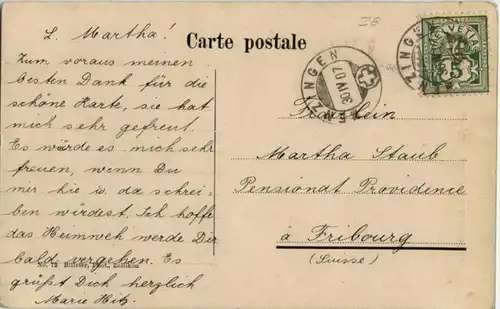 L. Martha!
Zum voraus meinen
besten Dank für die
schöne Karte, sie hat
mich sehr gefreut.
Es würde es mich sehr
freuen, wenn Du
mir hie u. da schrei-
ben würdest. Ich hoffe
das Heimweh werde Dir
bald vergehen. Es
grüßt Dich herzlich
Marie Hitz.
Phot., Zollikon
Carte postale
ENZINGEN
30.IV.07
HELVETIA
5
Fräulein
Martha Staub
Pensionat Providence
à Fribourg
(Suisse)